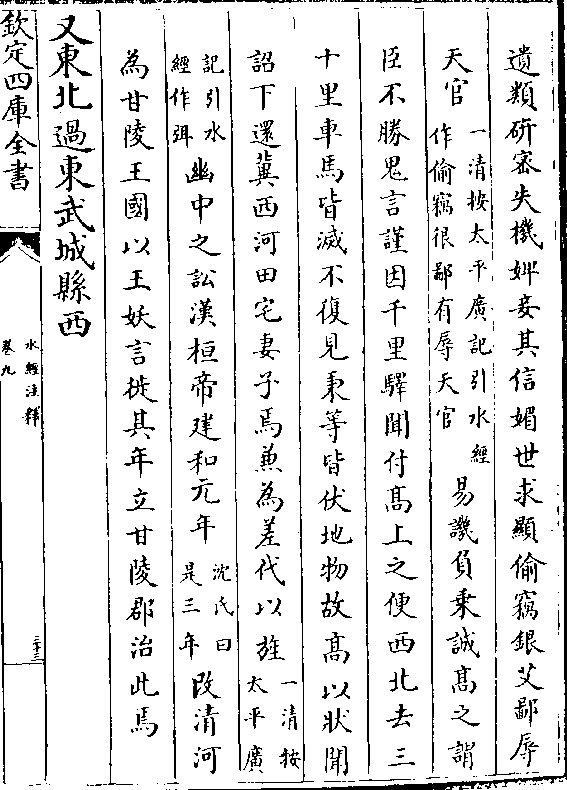 遺類研審失機婢妾其信媚世求顯偷竊銀艾鄙辱
天官一清按太平廣記引水經作偷竊很鄙有辱天官易譏負乗誠髙之謂
臣不勝鬼言謹因千里驛聞付髙上之便西北去三
十里車馬皆滅不復見秉等皆伏地物故髙以狀聞
詔下還冀西河田宅妻子焉兼為差代以旌一清按太平廣
記引水經作弭幽中之訟漢桓帝建和元年沈氏曰是三年改清河
為甘陵王國以王妖言徙其年立甘陵郡治此焉
又東北過東武城縣西
欽定四庫全書
水經注釋
卷九
三十三